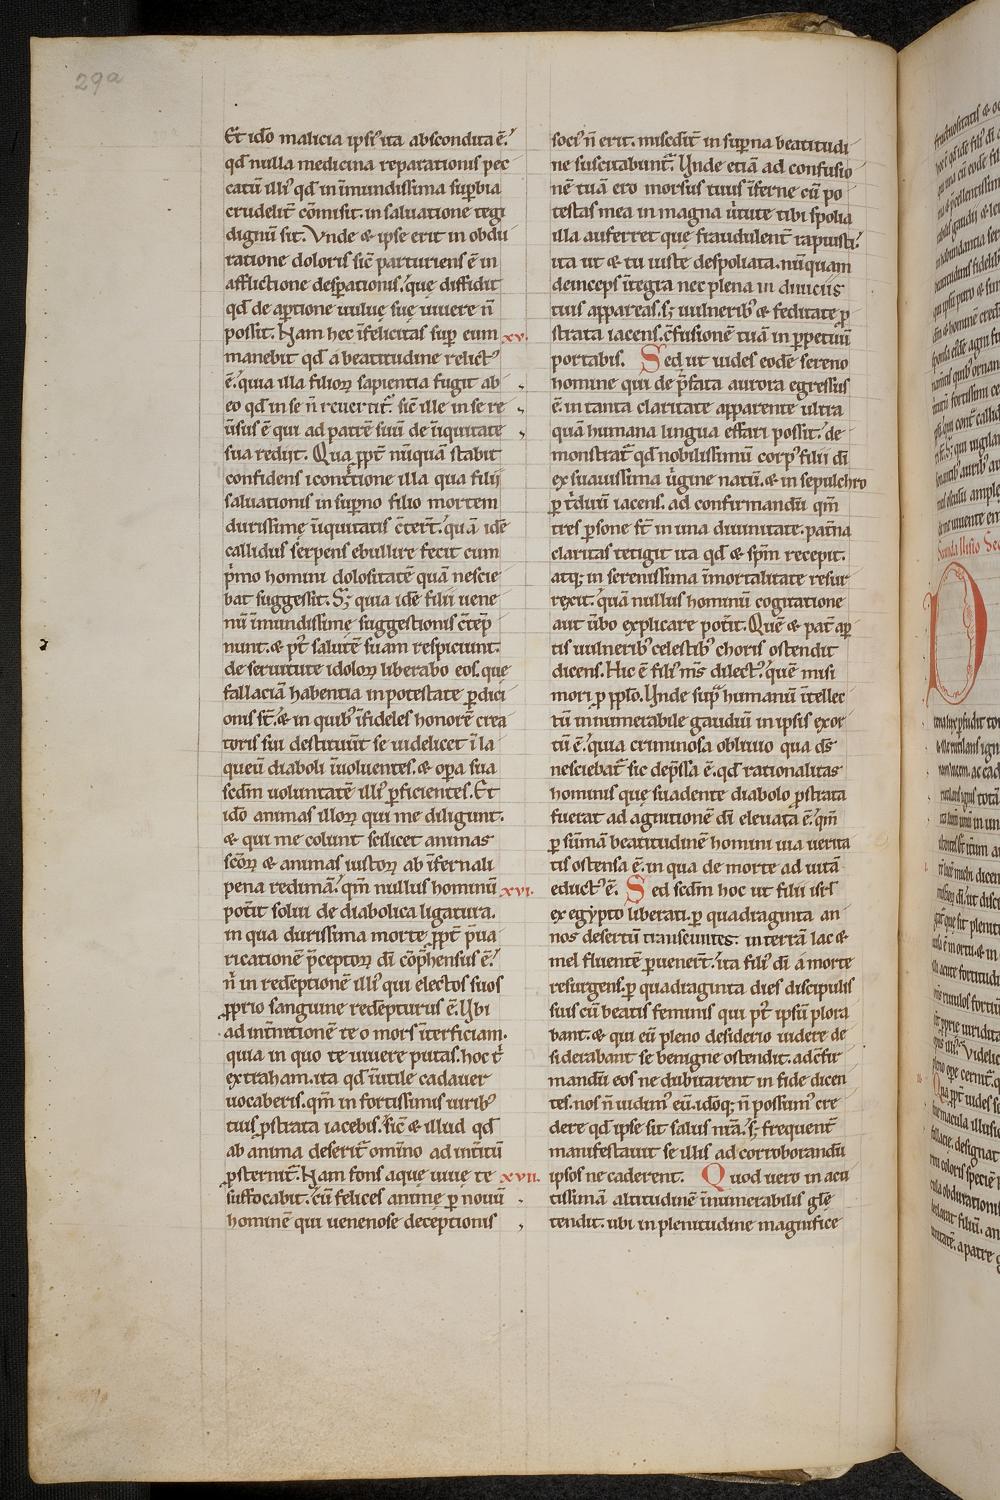 29a
Et ido malicia ipsi' ita abscondita ē.'
qd' nulla medicina reparationis pec
catū illi' qd' in īmundissima sup̄bia
crudelit̄ cōmisit. in saluatione tegi
dignū sit. Vnde & ipse erit in obdu
ratione doloris sic̄ parturiens ē in
afflictione desp̄ationis.' quę diffidit
qd' de ap̄tione uuluę suę uiuere n̄
possit. Nam hec īfelicitas sup̄ eum
manebit qd' a beatitudine relict'
ē.' quia illa filioꝝ sapientia fugit ab
eo qd' in se n̄ reuertit̄. sic̄ ille in se re
ūsus ē qui ad patrē suū de īiquitate
sua redijt. Qua ꝓpt̄ nūquā stabit
confidens ī contͥtione illa qua filii
saluationis in sup̄no filio mortem
durissimę īiquitatis c̄tert̄.' quā idē
callidus serpens ebullire fecit cum
p̄mo homini dolositatē quā nescie
bat suggessit. S; quia idē filii uene
nū īmundissimę suggestionis c̄tēp
nunt. & p̄t salutē suam respiciunt.
de seruitute idoloꝝ liberabo eos. quę
fallaciā habentia in potestate ꝑdici
onis s̄t. & in quib' īfideles honorē crea
toris sui destituūt se uidelicet ī la
queū diaboli īuoluentes. & oꝑa sua
scdm̄ uoluntatē illi' ꝑficientes. Et
ido animas illoꝝ qui me diligunt.
& qui me colunt scilicet animas
sc̄oꝝ & animas iustoꝝ ab īfernali
pena redimā.' qm̄ nullus hominū
potīt solui de diabolica ligatura.
in qua durissima morte ꝓpt̄ p̄ua
ricationē p̄ceptoꝝ dī cōp̄hensus ē.'
nͥ in redēptionē illi' qui electos suos
ꝓprio sanguine redēpturus ē. Ubi
ad int̄netionē te o mors īterficiam.
quia in quo te uiuere putas. hoc t̄
extraham. ita qd' īutile cadauer
uocaberis. qm̄ in fortissimis uirib'
tuis ꝓstrata iacebis. sic̄ & illud qd'
ab anima deserit̄ omīno ad intītū
ꝓsternit̄. Nam fons aquę uiuę te
suffocabit. cū felices animę ꝑ nouū
hominē qui uenenosę deceptionis
xv.
xvi.
xvii.
soci' n̄ erit. misc̄dit̄ in sup̄na beatitudi
ne suscitabunt̄. Unde etiā ad confusio
nē tuā ero morsus tuus īferne cū po
testas mea in magna ūtute tibi spolia
illa auferret quę fraudulent̄ rapuisti.'
ita ut & tu iuste despoliata. nūquam
deinceps ītegra nec plena in diuiciis
tuis appareas. s; uulnerib' & feditate ꝓ
strata iacens. c̄fusionē tuā in ꝑpetuū
portabis. Sed ut uides eodē sereno
homine qui de p̄fata aurora egressus
ē in tanta claritate apparente ultra
quā humana lingua effari possit.' de
monstrat̄ qd' nobilissimū corp' filii dī
ex suauissima uͥgine natū. & in sepulchro
ꝑ tͥduū iacens. ad confirmandū qm̄
tres ꝑsone s̄t in una diuinitate. pat̄na
claritas tetigit ita qd' & spm̄ recepit.
atq; in serenissima īmortalitate resur
rexit.' quā nullus hominū cogitatione
aut ūbo explicare potīt. Quē & pat̄ ap
tis uulnerib' celestib' choris ostendit
dicens. Hic ē fili' ms̄ dilect'.' quē misi
mori ꝓ pplo. Unde supͣ humanū ītellec
tū innumerabile gaudiū in ipsis exor
tū ē.' quia criminosa obliuio qua ds̄
nesciebat̄ sic dep̄ssa ē. qd' rationalitas
hominis quę suadente diabolo ꝓstrata
fuerat ad agnitionē dī eleuata ē.' qm̄
ꝑ sūmā beatitudinē homini uia uerita
tis ostensa ē. in qua de morte ad uitā
educt' ē. Sed scdm̄ hoc ut filii isrl̄
ex egypto liberati. ꝑ quadraginta an
nos desertū transeuntes: in terrā lac &
mel fluentē ꝑuenert̄.' ita fili' dī a morte
resurgens. ꝑ quadraginta dies discipulis
suis cū beatis feminis qui p̄t ipsū plora
bant. & qui eū pleno desiderio uidere de
siderabant se benigne ostendit. ad c̄fir
mandū eos ne dubitarent in fide dicen
tes. nos n̄ uidim' eū. idōq; n̄ possum' cre
dere qd' ipse sit salus nr̄a.' s; frequent̄
manifestauit se illis ad corroborandū
ipsos ne caderent. Quod uero in acu
tissimā altitudinē īnumerabilis glę
tendit. ubi in plenitudine magnifice